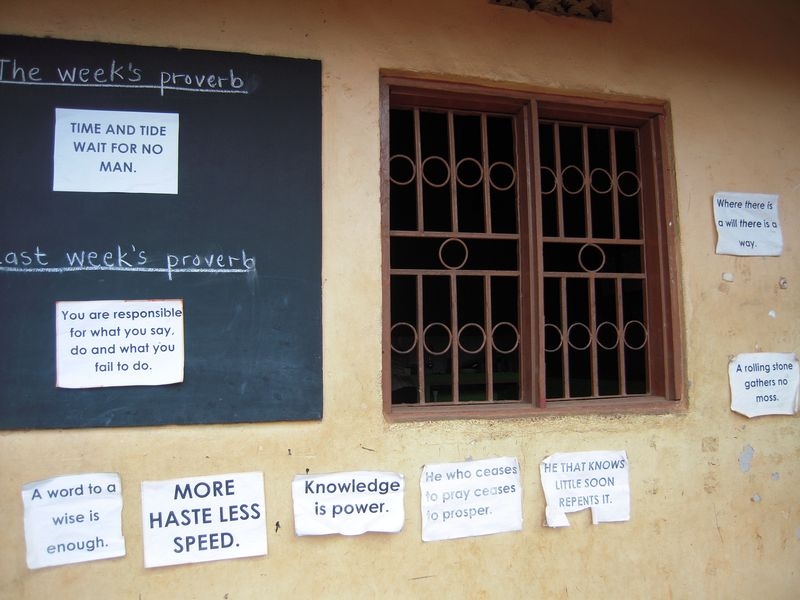 The week's proverb
TIME AND TIDE
WAIT FOR NO
MAN.
Last week's proverb
You are responsible
for what you say,
do and what you
fail to do.
Where there is
a will there is a
way.
A rolling stone
gathers no
moss.
A word to a
wise is
enough.
MORE
HASTE LESS
SPEED.
Knowledge
is power.
He who ceases
to pray ceases
to prosper.
HE THAT KNOWS
LITTLE SOON
REPENTS IT.